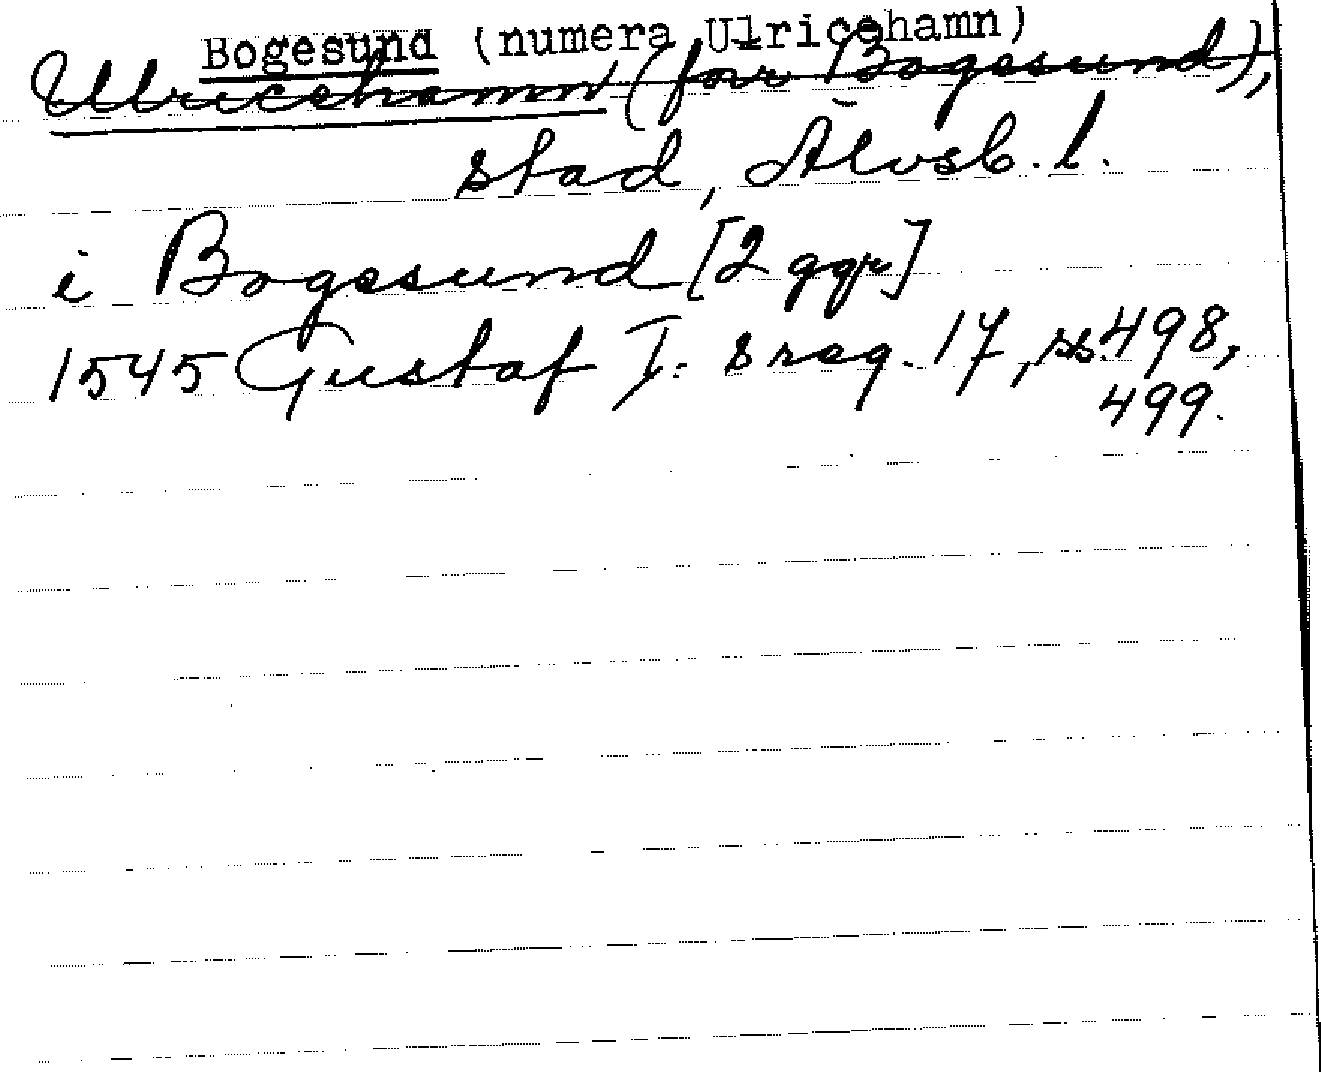 Bogesund (numera Ulricehamn)
Ulricehamn (förr Bogesund),
stad, Älvsb. l.
i Bogesund [2 ggr]
1545 Gustaf I: s reg. 17, ss. 498,
499.